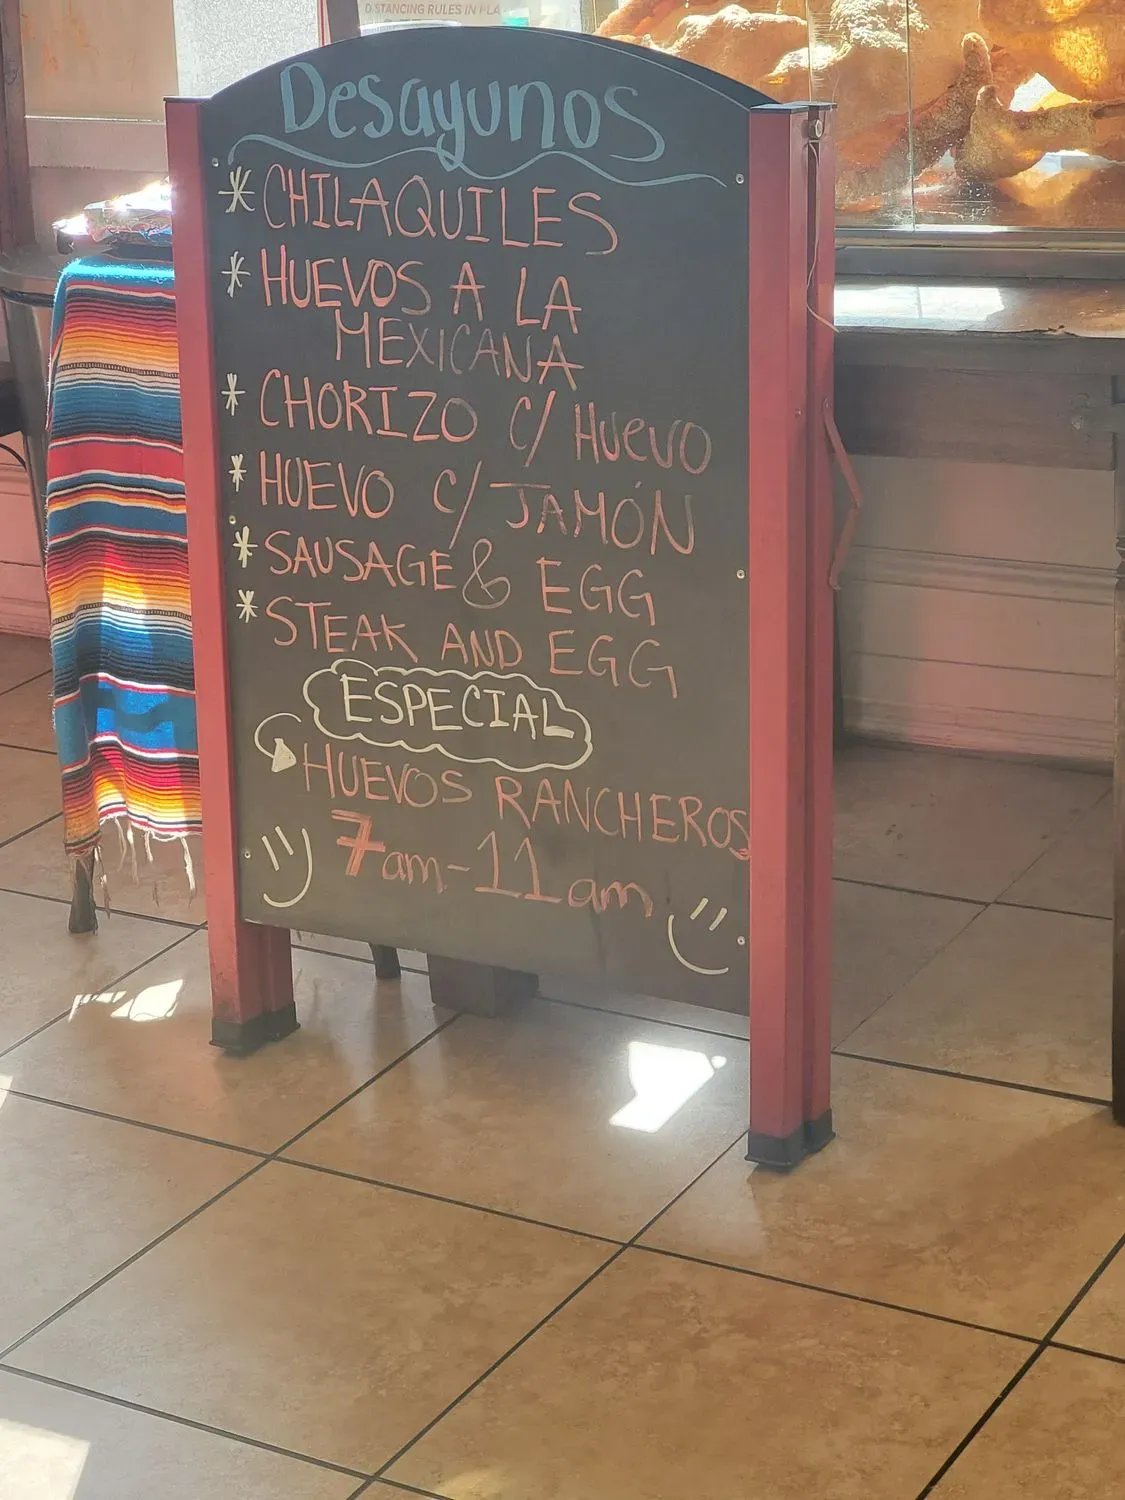 DISTANCING RULES IN PLA
Desayunos
* CHILAQUILES
* HUEVOS A LA
MEXICANA
* CHORIZO C/ HUEVO
* HUEVO C/ JAMÓN
* SAUSAGE & EGG
* STEAK AND EGG
ESPECIAL
HUEVOS RANCHEROS
7am-11am